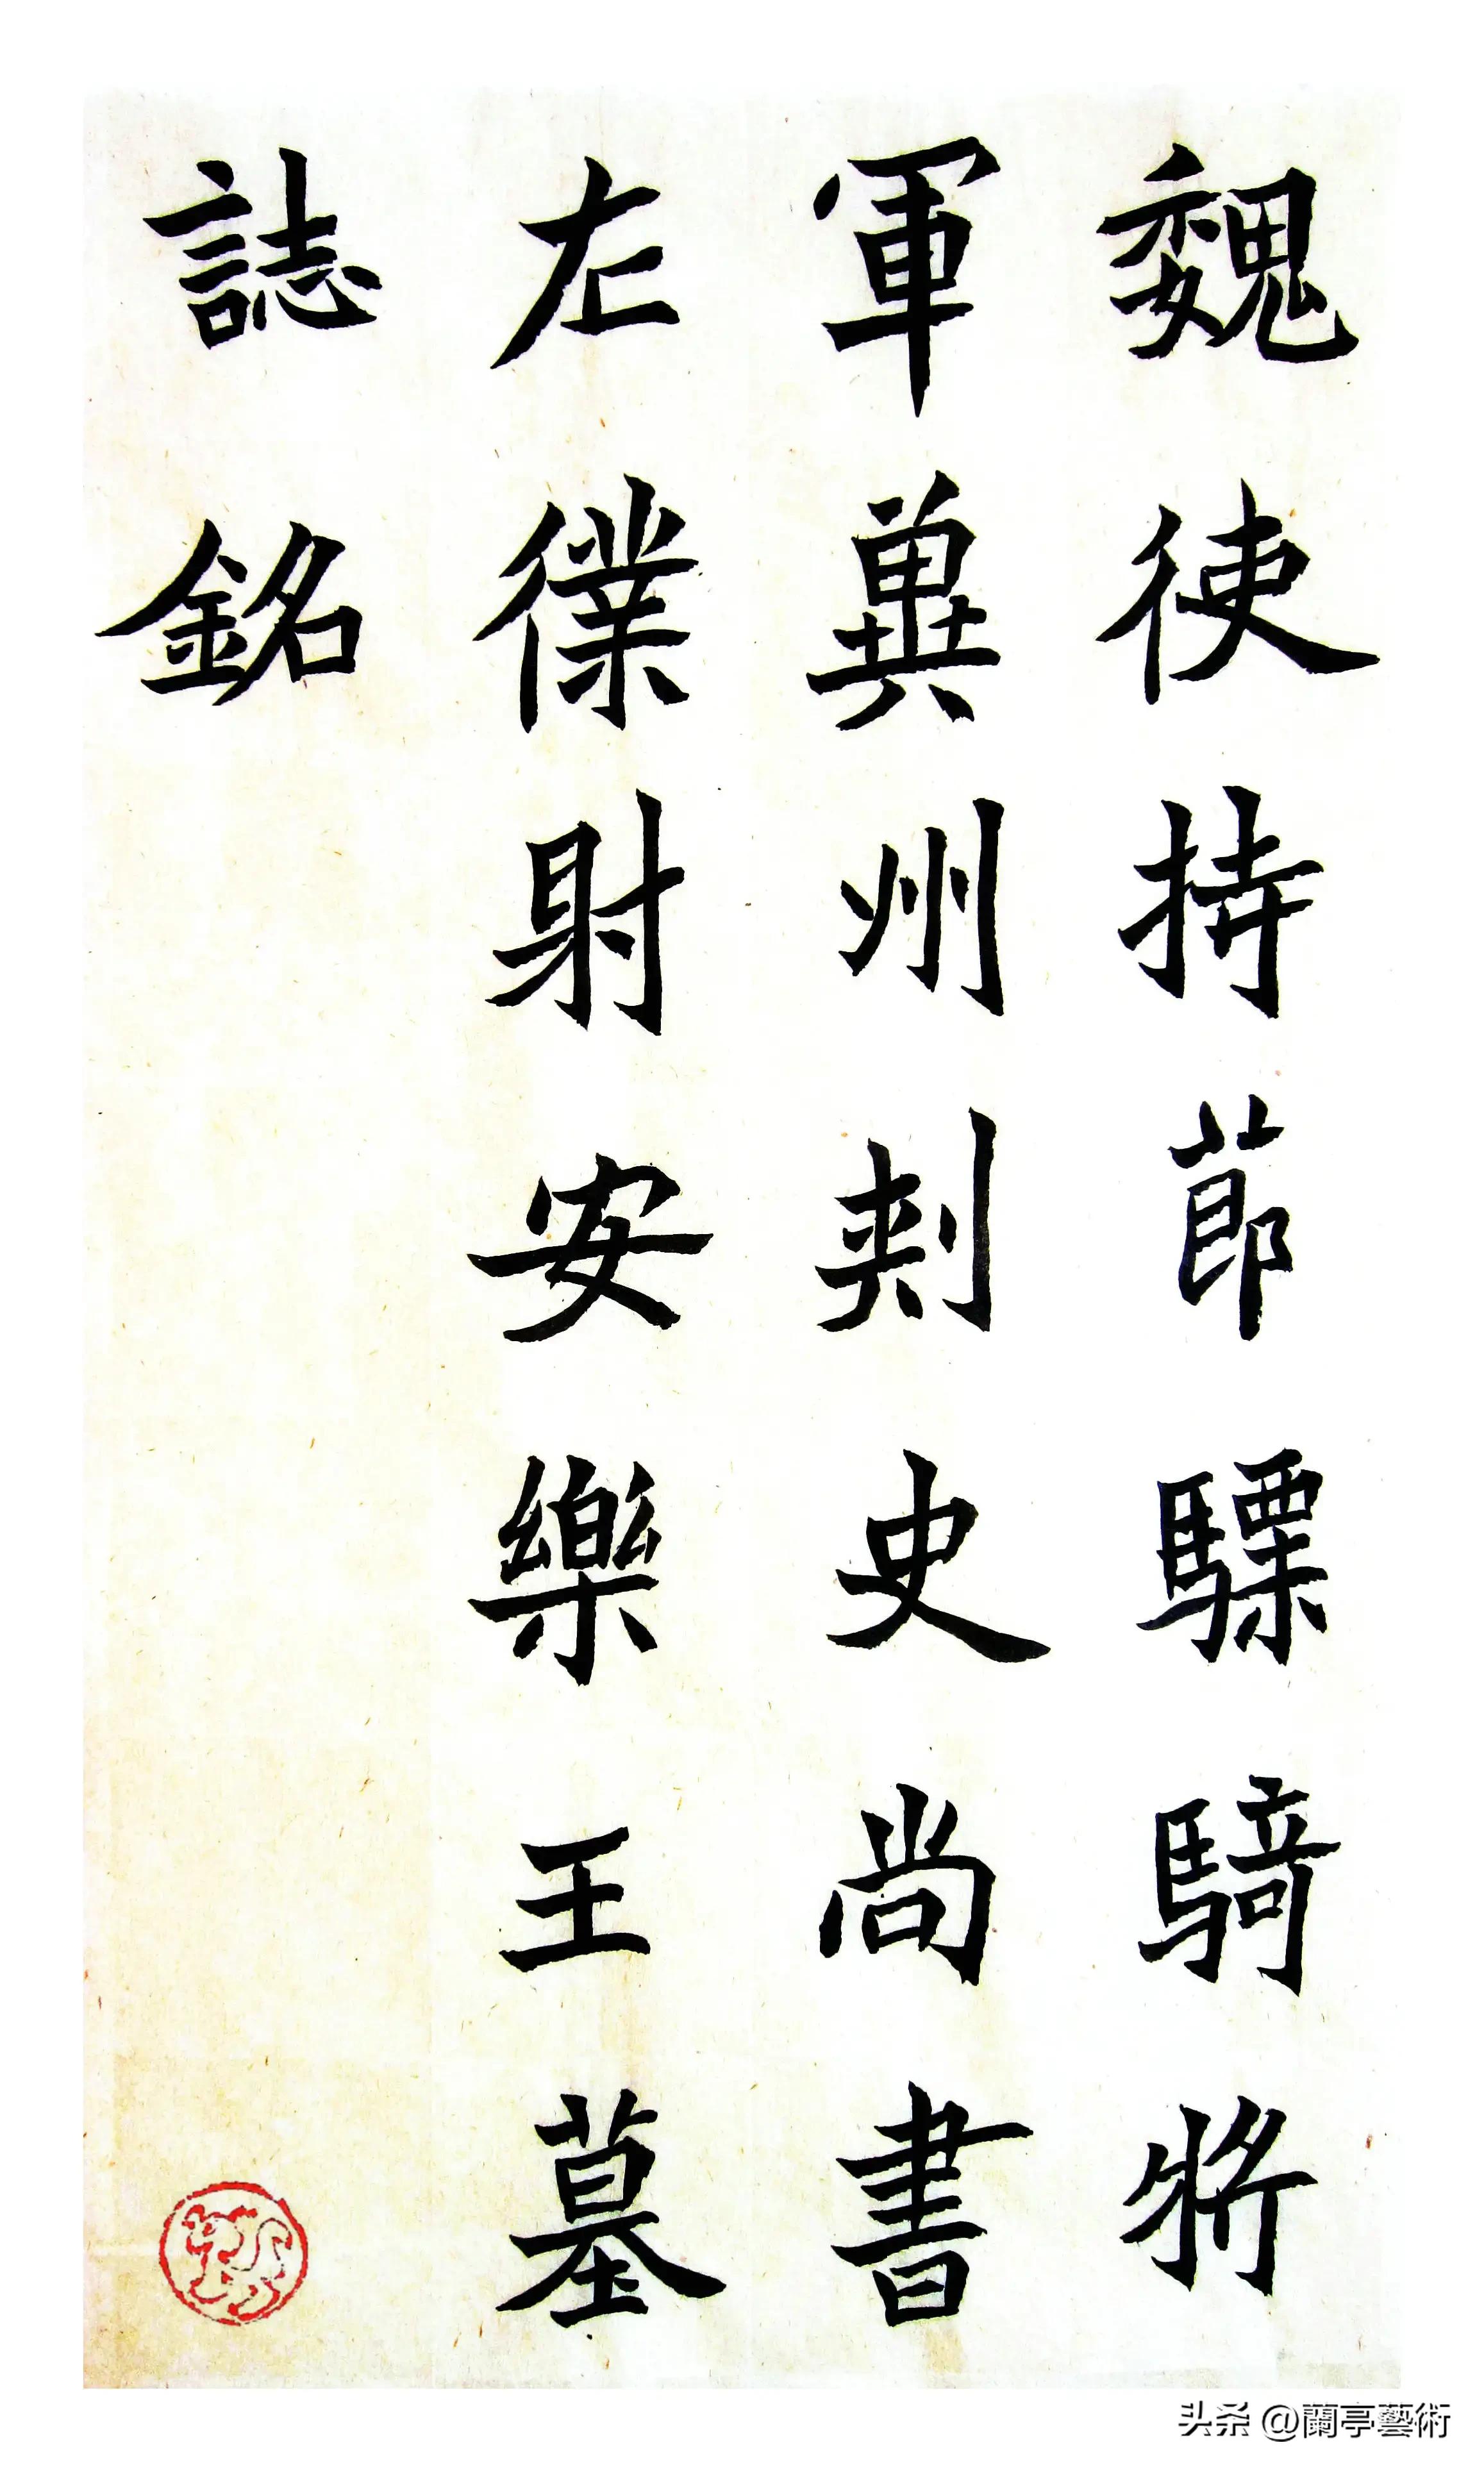 魏使持節驃騎將
軍冀州刺史尚書
左僕射安樂王墓
誌銘
头条 @蘭亭藝術